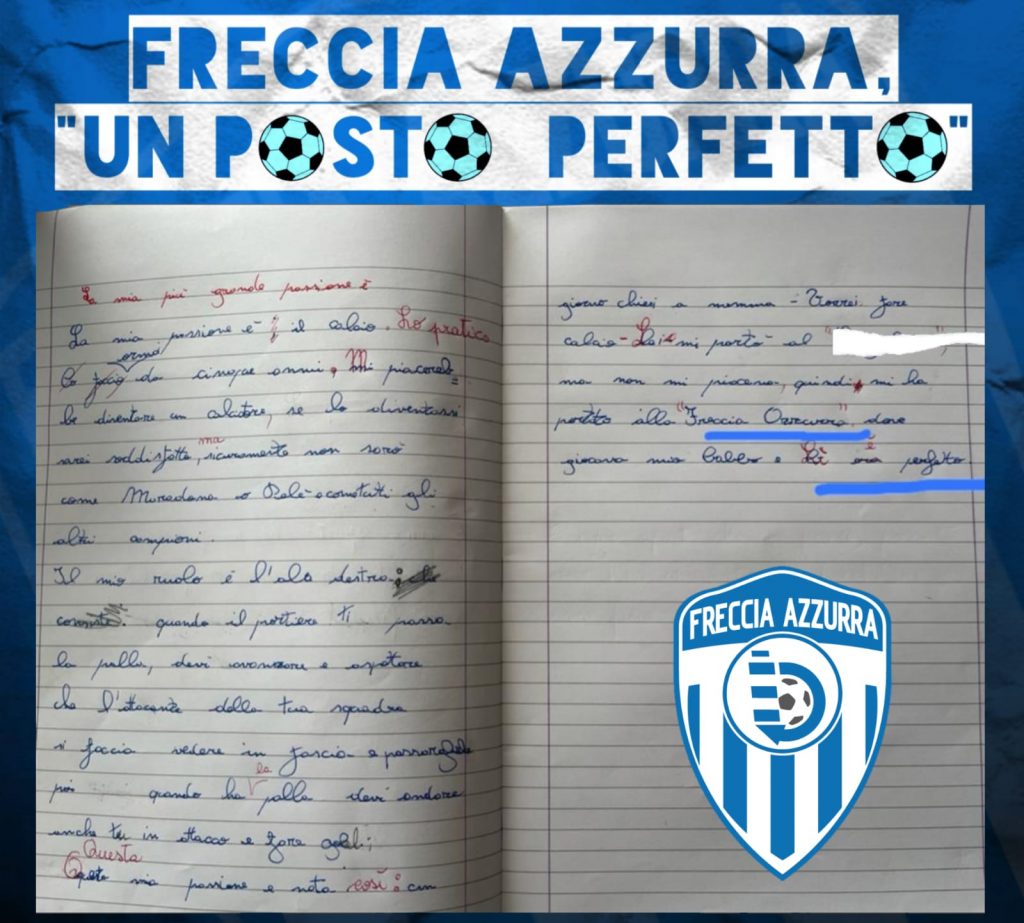 FRECCIA AZZURRA,
"UN POSTO PERFETTO"
La mia più grande passione è
La mia passione è il calcio. Lo pratico
lo faccio ormai da cinque anni, Mi piacereb=
be diventare un calciatore, se lo diventassi
sarei soddisfatto, ma sicuramente non sarò
come Maradona o Pelè e gli
altri campioni.
Il mio ruolo è l'ala destra:
quando il portiere ti passa
la palla, devi avanzare e aspettare
che l'attacante della tua squadra
si faccia vedere in fascia e passargliela
poi quando ha la palla devi andare
anche tu in attacco e fare goal;
Questa
mia passione e nata così: un
giorno chiesi a mamma - Vorrei fare
calcio - Lei mi portò al
ma non mi piaceva, quindi mi ha
portato alla "Freccia Azzurra" dove
giocava mio babbo e Lì era è perfetto
FRECCIA AZZURRA